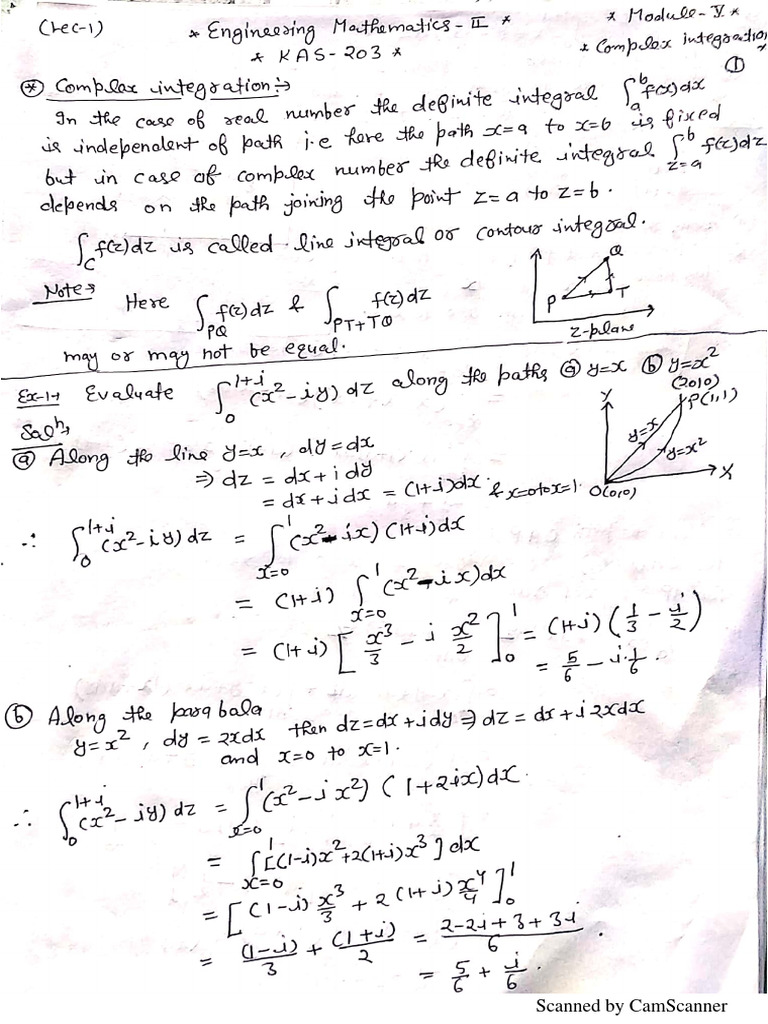 (Lec-1)
* Engineering Mathematics-II *
* Module-V *
* KAS-203 *
* Complex integration *
①
⊛ Complex integration:→
In the case of real number the definite integral ∫_a^b f(x)dx
is independent of path i.e here the path x=a to x=b is fixed
but in case of complex number the definite integral ∫_{z=a}^b f(z)dz
depends on the path joining the point z=a to z=b.
∫_C f(z)dz is called line integral or contour integral.
Note→ Here ∫_{PQ} f(z)dz & ∫_{PT+TQ} f(z)dz
may or may not be equal.
Q
P
T
z-plane
Ex-1→ Evaluate ∫_0^{1+i} (x²-iy) dz along the paths ⓐ y=x ⓑ y=x²
Solⁿ→
ⓐ Along the line y=x, dy=dx
⇒ dz = dx+idy
= dx+idx = (1+i)dx & x=0 to x=1.
(2010)
Y
P(1,1)
y=x
y=x²
X
O(0,0)
∴ ∫_0^{1+i} (x²-iy) dz = ∫_{x=0}^1 (x²-ix)(1+i)dx
= (1+i) ∫_{x=0}^1 (x²-ix)dx
= (1+i) [x³/3 - i x²/2]_0^1 = (1+i) (1/3 - i/2)
= 5/6 - i.1/6.
ⓑ Along the parabala
y=x², dy=2xdx then dz=dx+idy ⇒ dz = dx+i2xdx
and x=0 to x=1.
∴ ∫_0^{1+i} (x²-iy) dz = ∫_{x=0}^1 (x²-ix²) (1+2ix)dx.
= ∫_{x=0}^1 [(1-i)x²+2(1+i)x³] dx
= [(1-i) x³/3 + 2(1+i) x⁴/4]_0^1
= (1-i)/3 + (1+i)/2 = (2-2i+3+3i)/6.
= 5/6 + i/6.
Scanned by CamScanner